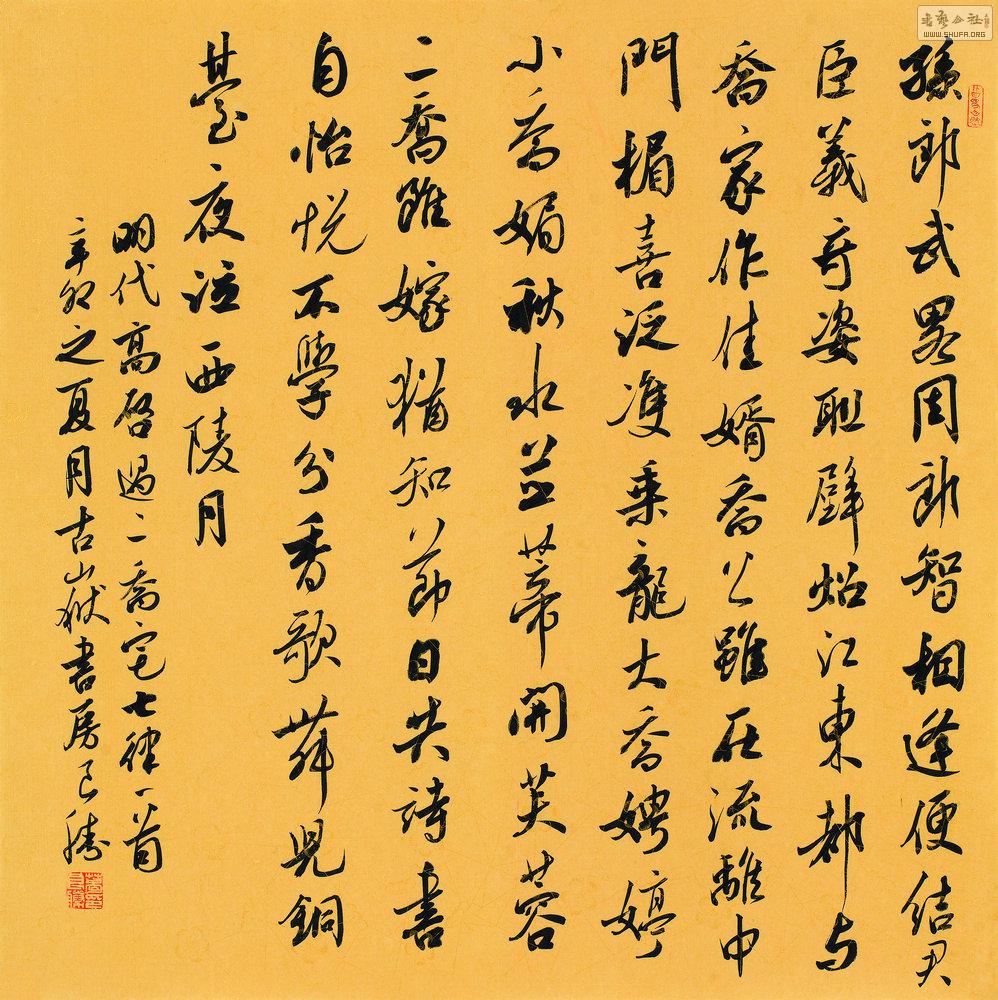 書藝公社
WWW.SHUFA.ORG
孫郎武畧周郎智相逢便結君
臣義奇姿聯璧焰江東都与
喬家作佳婿喬公雖在流離中
門楣喜泛雙乘龍大喬娉婷
小喬媚秋水並蒂開芙蓉
二喬雖嫁猶知節日共詩書
自怡悦不學分香歌舞兒銅
臺夜泣西陵月
明代高啓過二喬宅七律一首
辛卯之夏月古山嶽書房